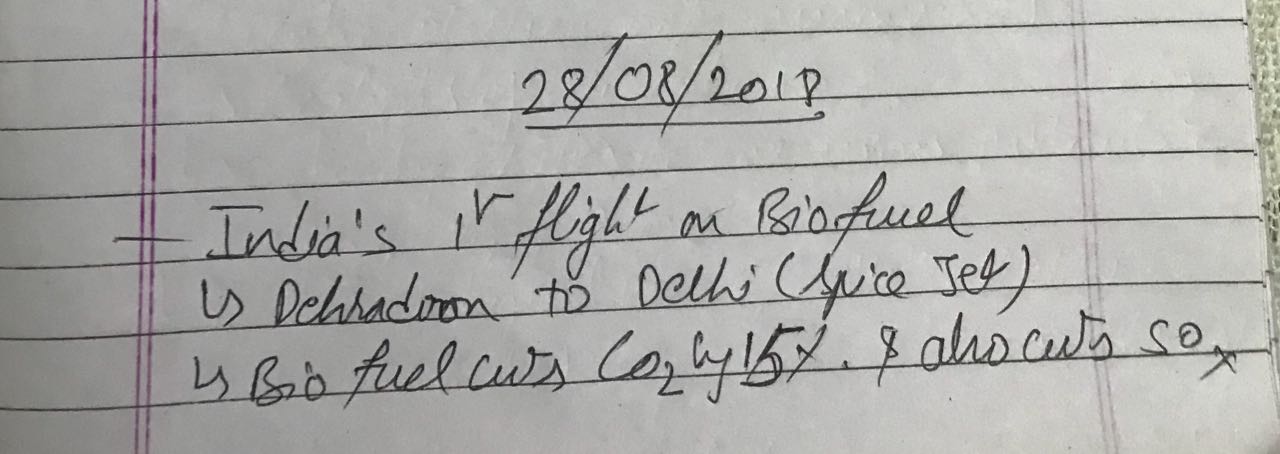 28/08/2018
— India's 1st flight on Biofuel
↳ Dehradoon to Delhi (Spice Jet)
↳ Bio fuel cuts CO₂ by 15%. & also cuts SOₓ